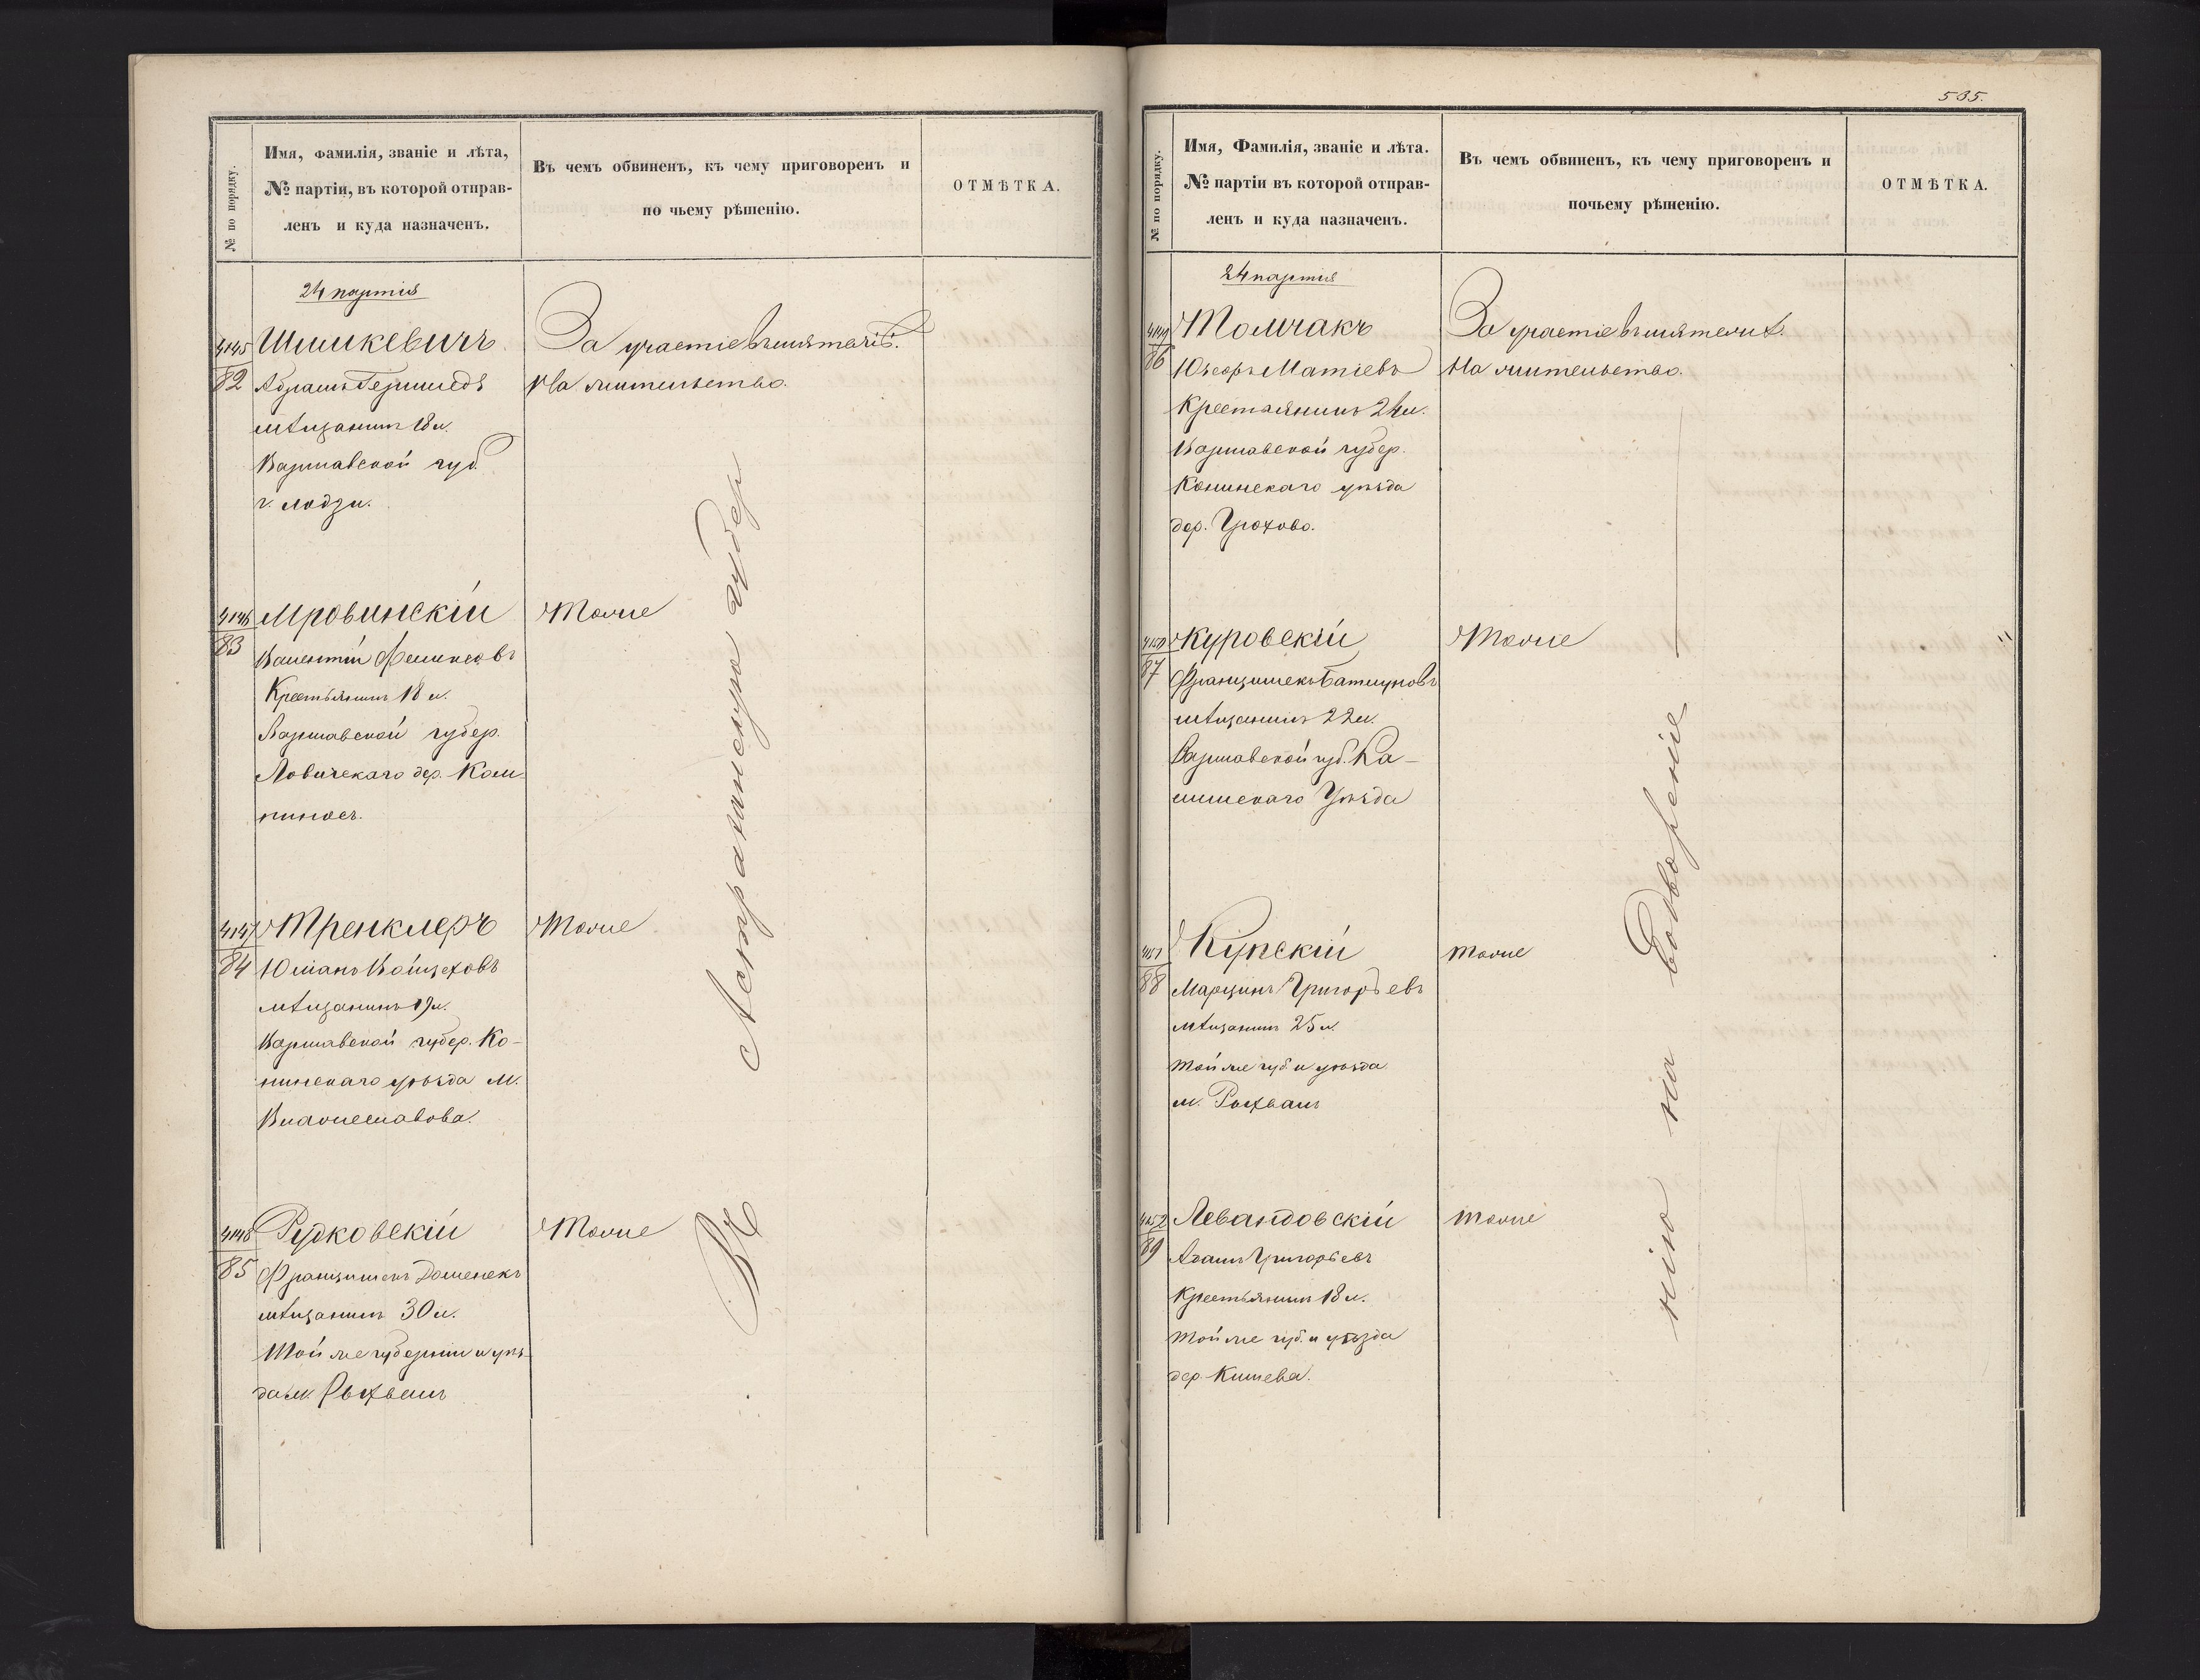 № по порядку.
Имя, фамилія, званіе и лѣта,
№ партіи, въ которой отправ-
ленъ и куда назначенъ.
Въ чемъ обвиненъ, къ чему приговоренъ и
по чьему рѣшенію.
ОТМѢТКА.
24 партія
4145
82
Шишкевичъ
Абрамъ
мѣщанинъ 18 л.
Варшавской губ.
г. Лодзи.
За участіе въ мятежѣ.
На жительство.
4146
83
Мровинскій
Валентій Феликсовъ
Крестьянинъ 18 л.
Варшавской губер.
Ловичскаго дер. Кам-
пиносъ.
Тоже
4147
84
Тренклеръ
Юліанъ Войцеховъ
мѣщанинъ 19 л.
Варшавской губер. Ко-
нинскаго уѣзда м.
Владиславова.
Тоже
4148
85
Рудковскій
Францишекъ Доменекъ
мѣщанинъ 30 л.
Той же губерніи и уѣз-
да м. Рыхвалъ
Тоже
Въ Астраханскую губер
535.
№ по порядку.
Имя, Фамилія, званіе и лѣта.
№ партіи въ которой отправ-
ленъ и куда назначенъ.
Въ чемъ обвиненъ, къ чему приговоренъ и
почьему рѣшенію.
ОТМѢТКА.
24 партія
4149
86
Томчакъ
Юзефъ Матіевъ
Крестьянинъ 24 л.
Варшавской губер.
Конинскаго уѣзда
дер. Грохово.
За участіе въ мятежѣ.
На жительство.
4150
87
Куровскій
Францишекъ
мѣщанинъ 22 л.
Варшавской губ. Ка-
лишскаго Уѣзда
Тоже
4151
88
Купскій
Марцинъ Григорьевъ
мѣщанинъ 25 л.
Той же губ. и уѣзда
м. Рыхвалъ
тоже
4152
89
Левандовскій
Адамъ Григорьевъ
Крестьянинъ 18 л.
Той же губ. и уѣзда
дер.
тоже
нію на водвореніе